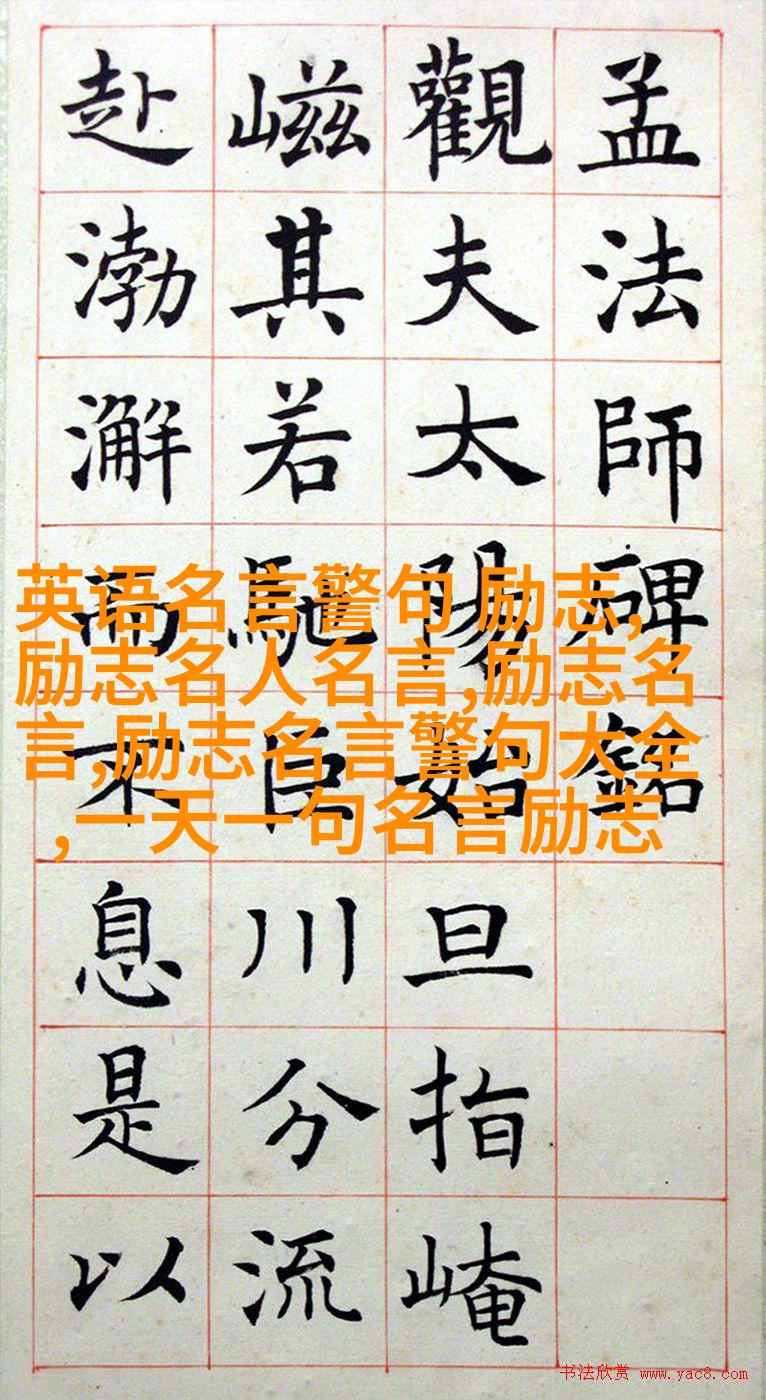 孟法師碑銘
觀夫太陽始旦指崦
嵫其若馳巨川分流
赴渤澥而不息是以
英语名言警句 励志,
励志名人名言,励志名
言,励志名言警句大全
,一天一句名言励志
书法欣赏 www.yac8.com